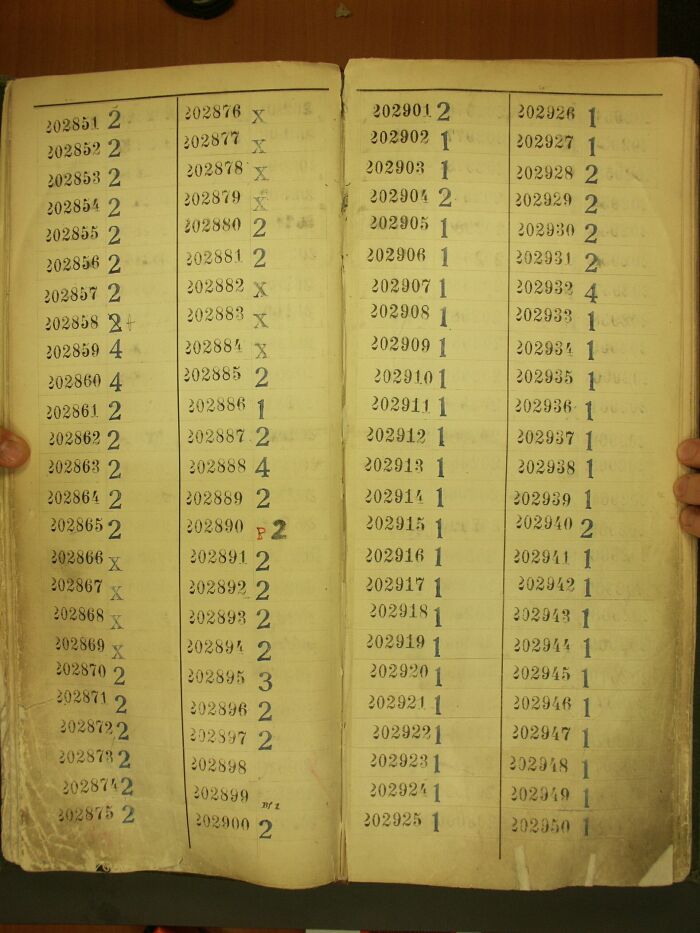 202851 2
202852 2
202853 2
202854 2
202855 2
202856 2
202857 2
202858 2
202859 4
202860 4
202861 2
202862 2
202863 2
202864 2
202865 2
202866 X
202867 X
202868 X
202869 X
202870 2
202871 2
202872 2
202873 2
202874 2
202875 2
202876 X
202877 X
202878 X
202879 X
202880 2
202881 2
202882 X
202883 X
202884 X
202885 2
202886 1
202887 2
202888 4
202889 2
202890 P 2
202891 2
202892 2
202893 2
202894 2
202895 3
202896 2
202897 2
202898
202899
202900 2
202901 2
202902 1
202903 1
202904 2
202905 1
202906 1
202907 1
202908 1
202909 1
202910 1
202911 1
202912 1
202913 1
202914 1
202915 1
202916 1
202917 1
202918 1
202919 1
202920 1
202921 1
202922 1
202923 1
202924 1
202925 1
202926 1
202927 1
202928 2
202929 2
202930 2
202931 2
202932 4
202933 1
202934 1
202935 1
202936 1
202937 1
202938 1
202939 1
202940 2
202941 1
202942 1
202943 1
202944 1
202945 1
202946 1
202947 1
202948 1
202949 1
202950 1